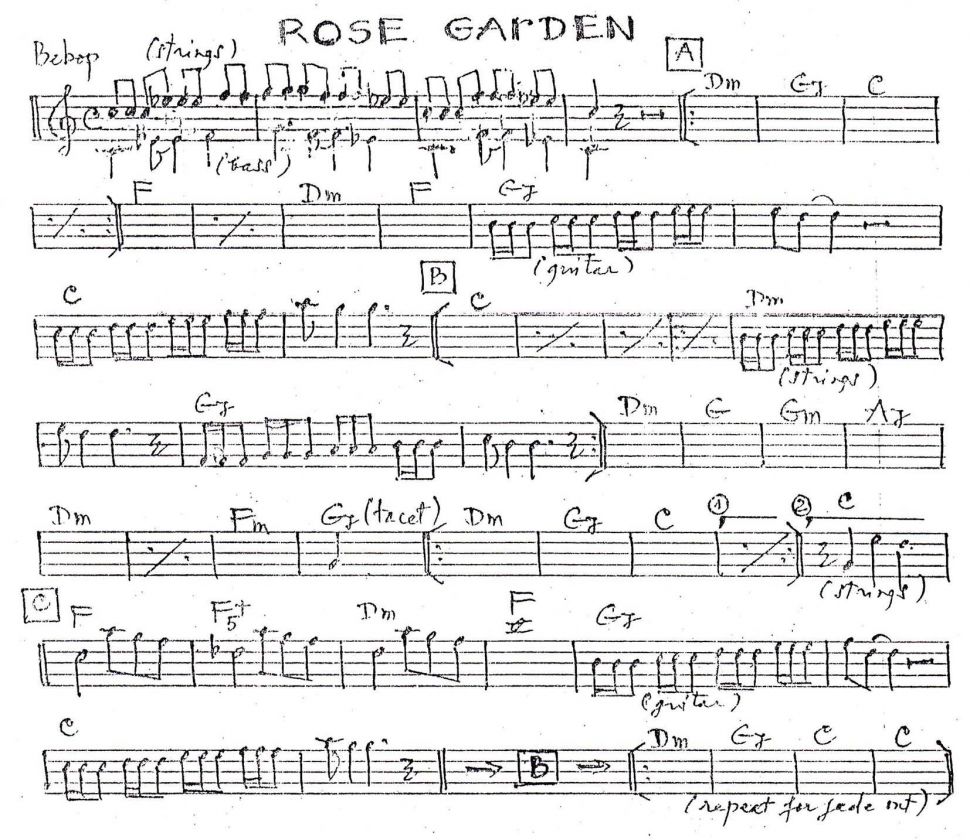 ROSE GArDEN
Bebop (strings) A Dm G7 C
(bass)
F Dm F G7
(guitar)
C B C Dm
(strings)
G7 Dm G Gm A7
Dm Fm G7 (tacet) Dm G7 C 1 2 C
(strings)
C F F5+ Dm F G7
(guitar)
C B Dm G7 C C
(repeat for fade out)